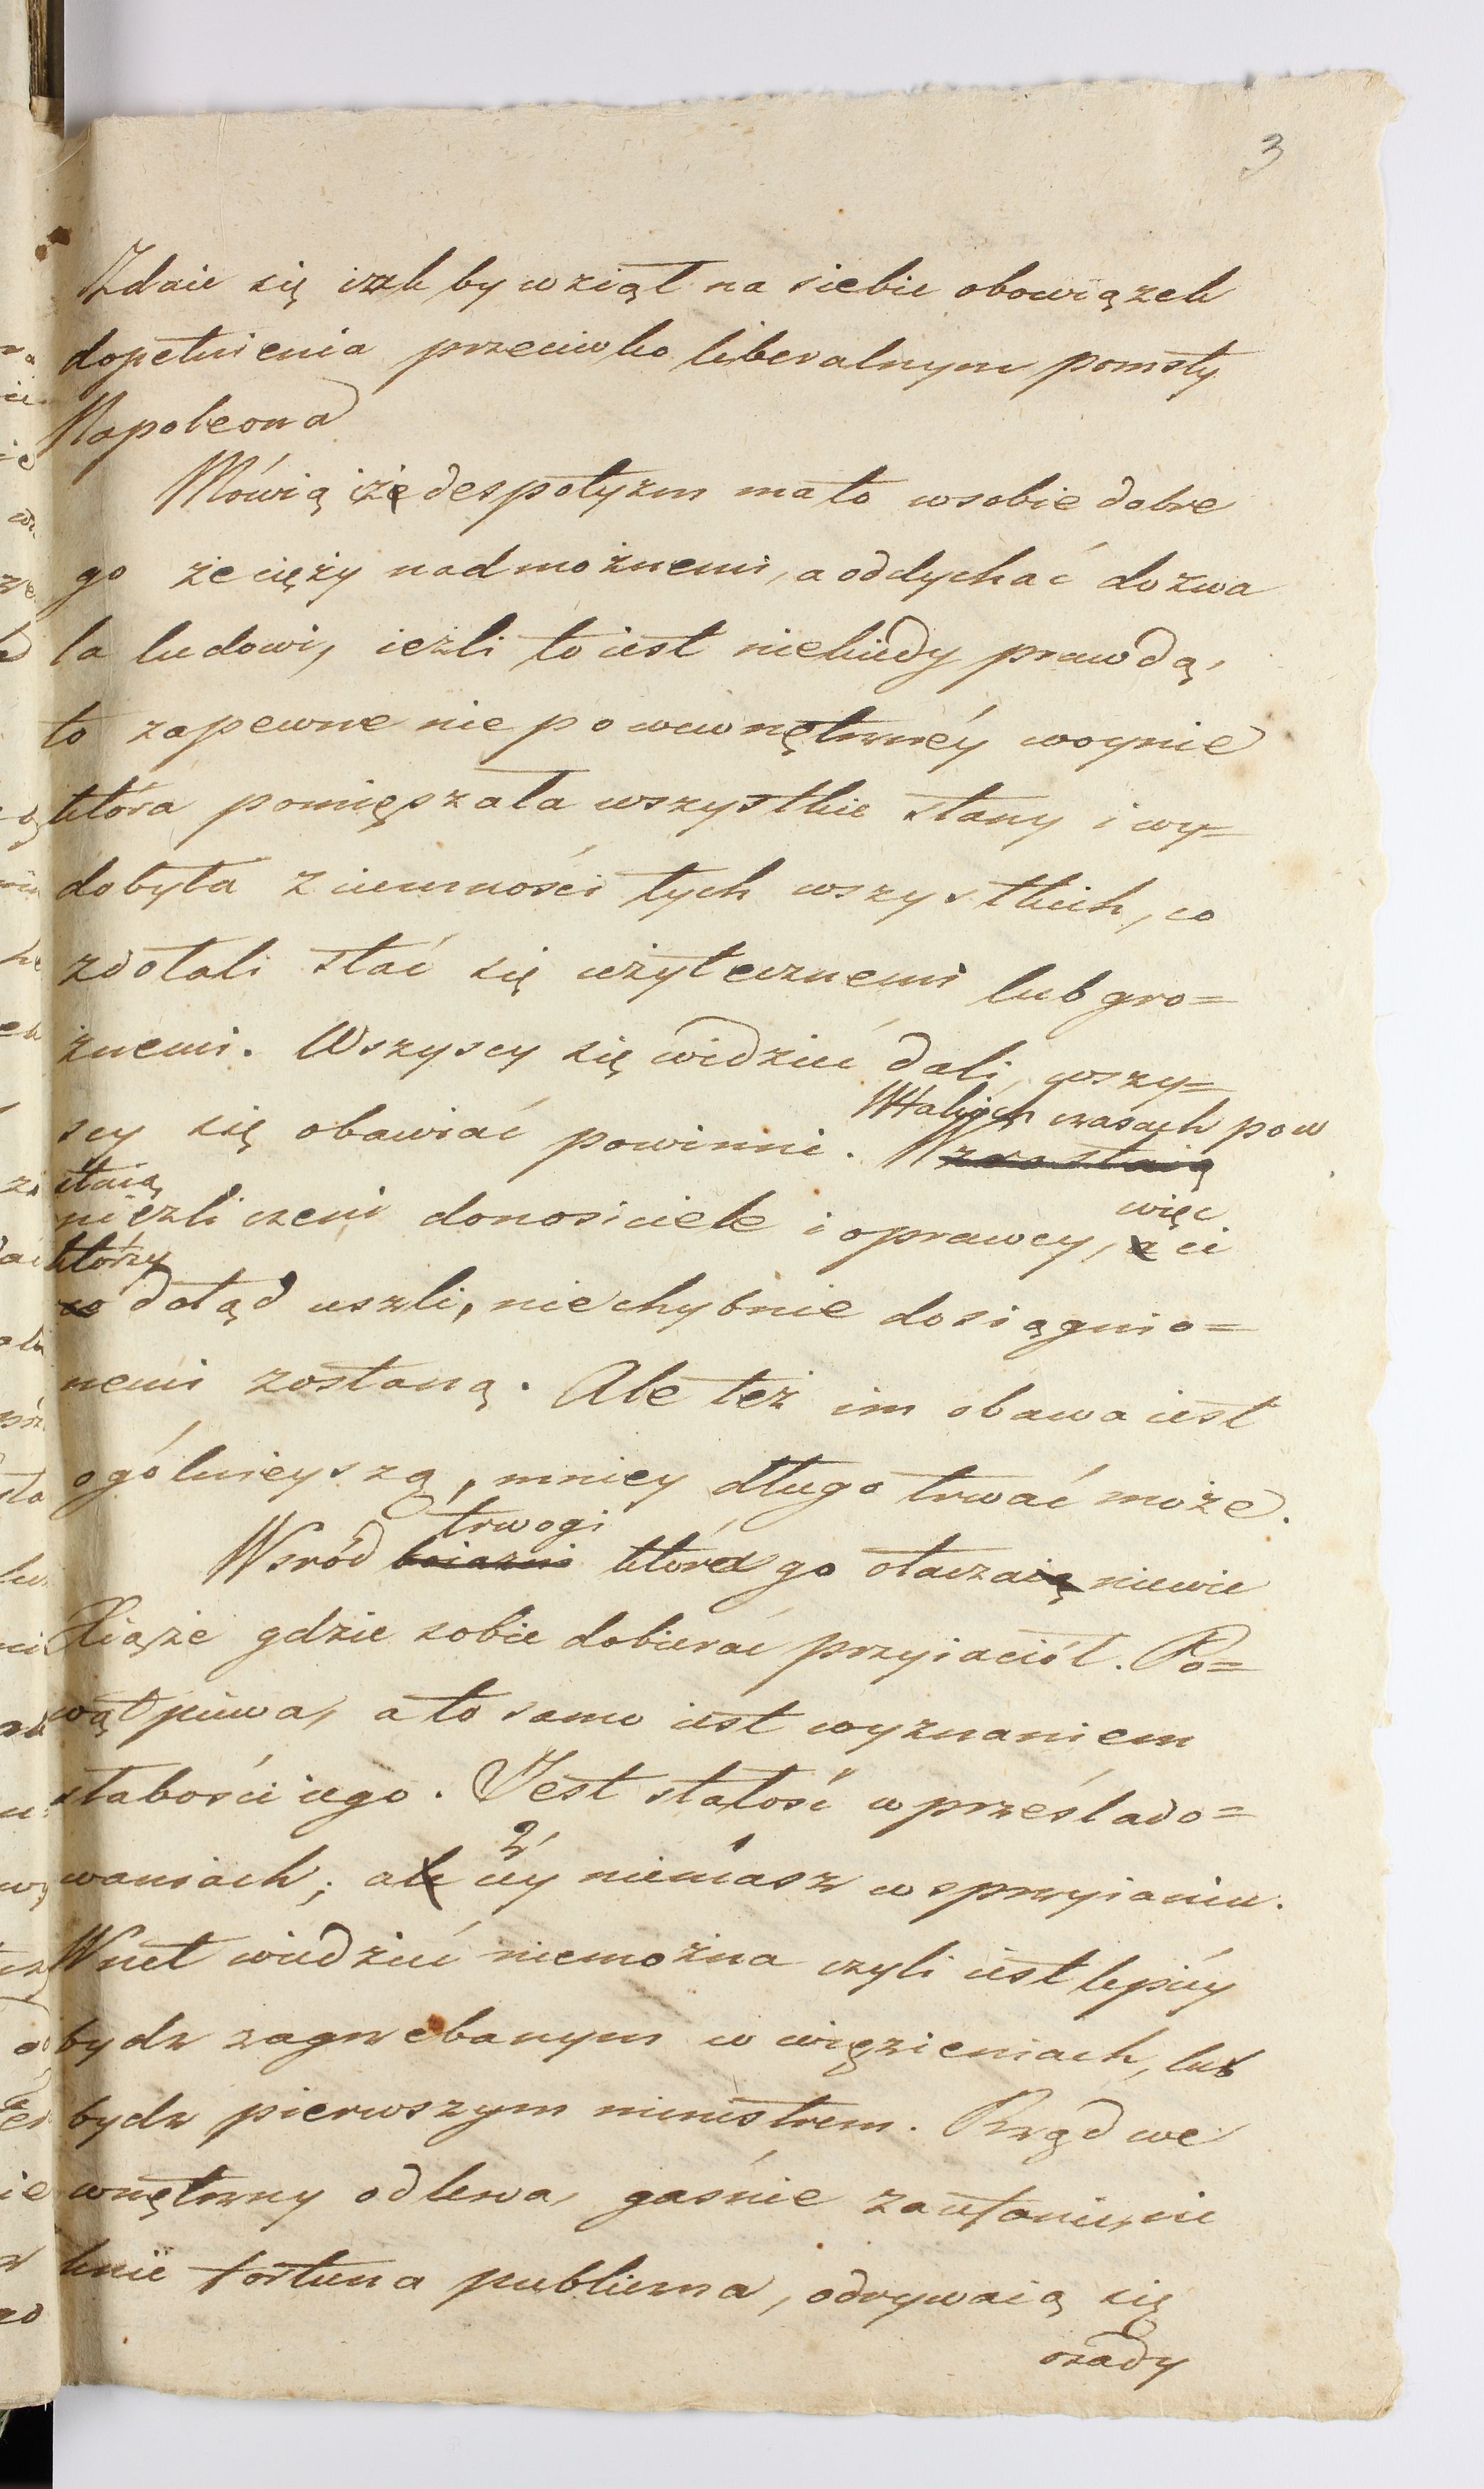 3
Zdaie się iak by wziął na siebie obowiązek
dopełnienia przeciwko liberalnym pomsty
Napoleona
Mówią iże despotyzm ma to w sobie dobre
go że cięży nad możnemi, a oddychać dozwa
la ludowi, ieżli to iest niekiedy prawdą,
to zapewne nie po wewnętrznéy woynie
która pomięszała wszystkie stany i wy=
dobyła z ciemności tych wszystkich, co
zdołali stać się użytecznemi lub gro=
źnemi. Wszyscy się widzieć dali, wszy=
W takich czasach pow
scy się obawiać powinni. Wzrastaią
staią
niezliczeni donosiciele i oprawcy, a ci
więc
którzy
co dotąd uszli, niechybnie dosiągnio=
nemi zostaną. Ale też im obawa iest
ogólnieyszą, mniey długo trwać może.
trwogi
Wsród boiazni która go otaczaią niewie
Xiąże gdzie sobie dobierać przyiaciół. Po=
wątpiewa, a to samo iest wyznaniem
słabości iego. Jest stałość w prześlado=
2
waniach; ale iéy niemasz w sprzyianiu.
Wnet wiedzieć niemożna czyli iest lepiéy
bydz zagrzebanym w więzieniach, lub
bydz pierwszym ministrem. Rząd we
wnętrzny odlewa, gaśnie zaufanie, nie
knie fortuna publiczna, odrywaią się
osady